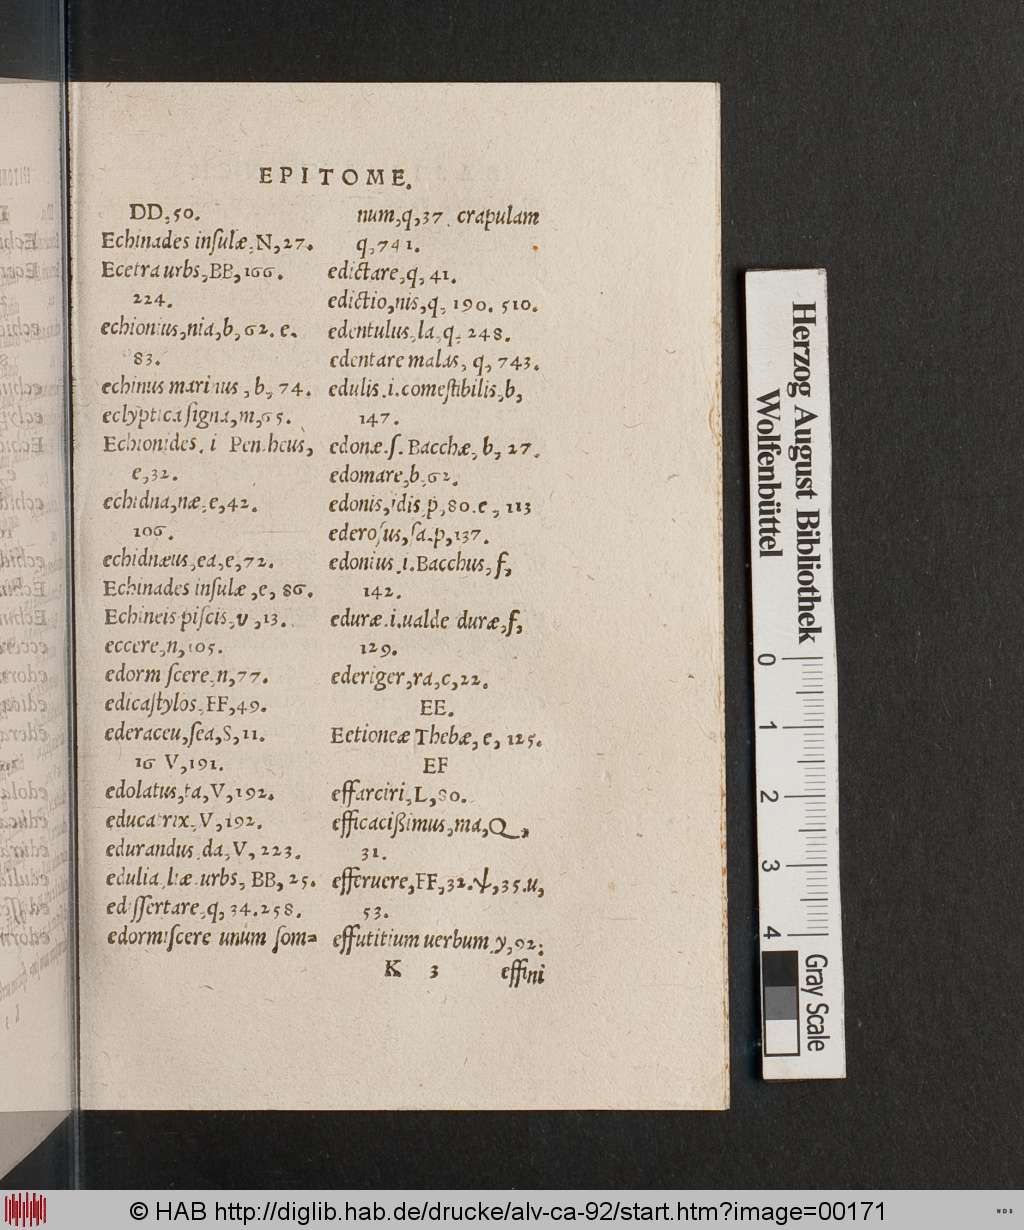 EPITOME.
DD, 50.
Echinades insulæ, N, 27.
Ecetra urbs, BB, 166.
224.
echionius, nia, b, 62. e.
83.
echinus marinus, b, 74.
eclyptica signa, m, 65.
Echionides. i Pentheus,
e, 32.
echidna, næ, e, 42.
106.
echidnæus, ea, e, 72.
Echinades insulæ, e, 86.
Echineis piscis, v, 13.
eccere, n, 105.
edormiscere, n, 77.
edicastylos, FF, 49.
ederaceu, sea, S, 11.
16 V, 191.
edolatus, ta, V, 192.
educatrix, V, 192.
edurandus, da, V, 223.
edulia, urbs, BB, 25.
edissertare, q, 34. 258.
edormiscere unum som=
num, q, 37. crapulam
q, 741.
edictare, q, 41.
edictio, nis, q, 190. 510.
edentulus, la, q, 248.
edentare malas, q, 743.
edulis. i. comestibilis, b,
147.
edonæ. s. Bacchæ, b, 27.
edomare, b, 62.
edonis, idis, p, 80. e, 113
ederosus, sa. p, 137.
edonius. i. Bacchus, f,
142.
eduræ. i. ualde duræ, f,
129.
ederiger, ra, c, 22.
EE.
Eetioneæ Thebæ, e, 125.
EF
effarciri, L, 80.
efficacißimus, ma, Q,
31.
efferuere, FF, 32. ψ, 35. u,
53.
effutitium uerbum, y, 92.
K 3 effini
Herzog August Bibliothek
Wolfenbüttel
0 1 2 3 4
Gray Scale
© HAB http://diglib.hab.de/drucke/alv-ca-92/start.htm?image=00171